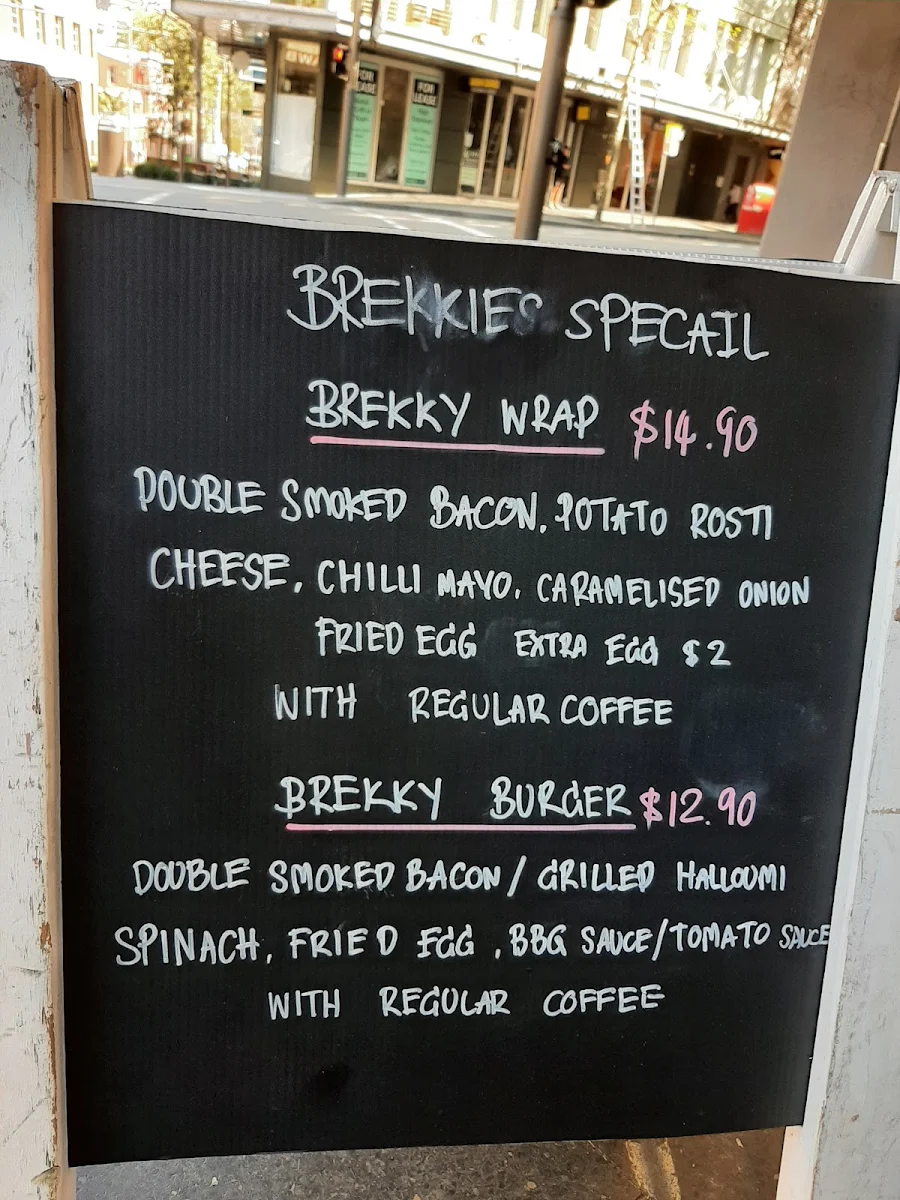 FOR
LEASE
FOR
LEASE
BREKKIES SPECAIL
BREKKY WRAP $14.90
DOUBLE SMOKED BACON, POTATO ROSTI
CHEESE, CHILLI MAYO, CARAMELISED ONION
FRIED EGG EXTRA EGG $2
WITH REGULAR COFFEE
BREKKY BURGER $12.90
DOUBLE SMOKED BACON / GRILLED HALLOUMI
SPINACH, FRIED EGG, BBQ SAUCE/TOMATO SAUCE
WITH REGULAR COFFEE